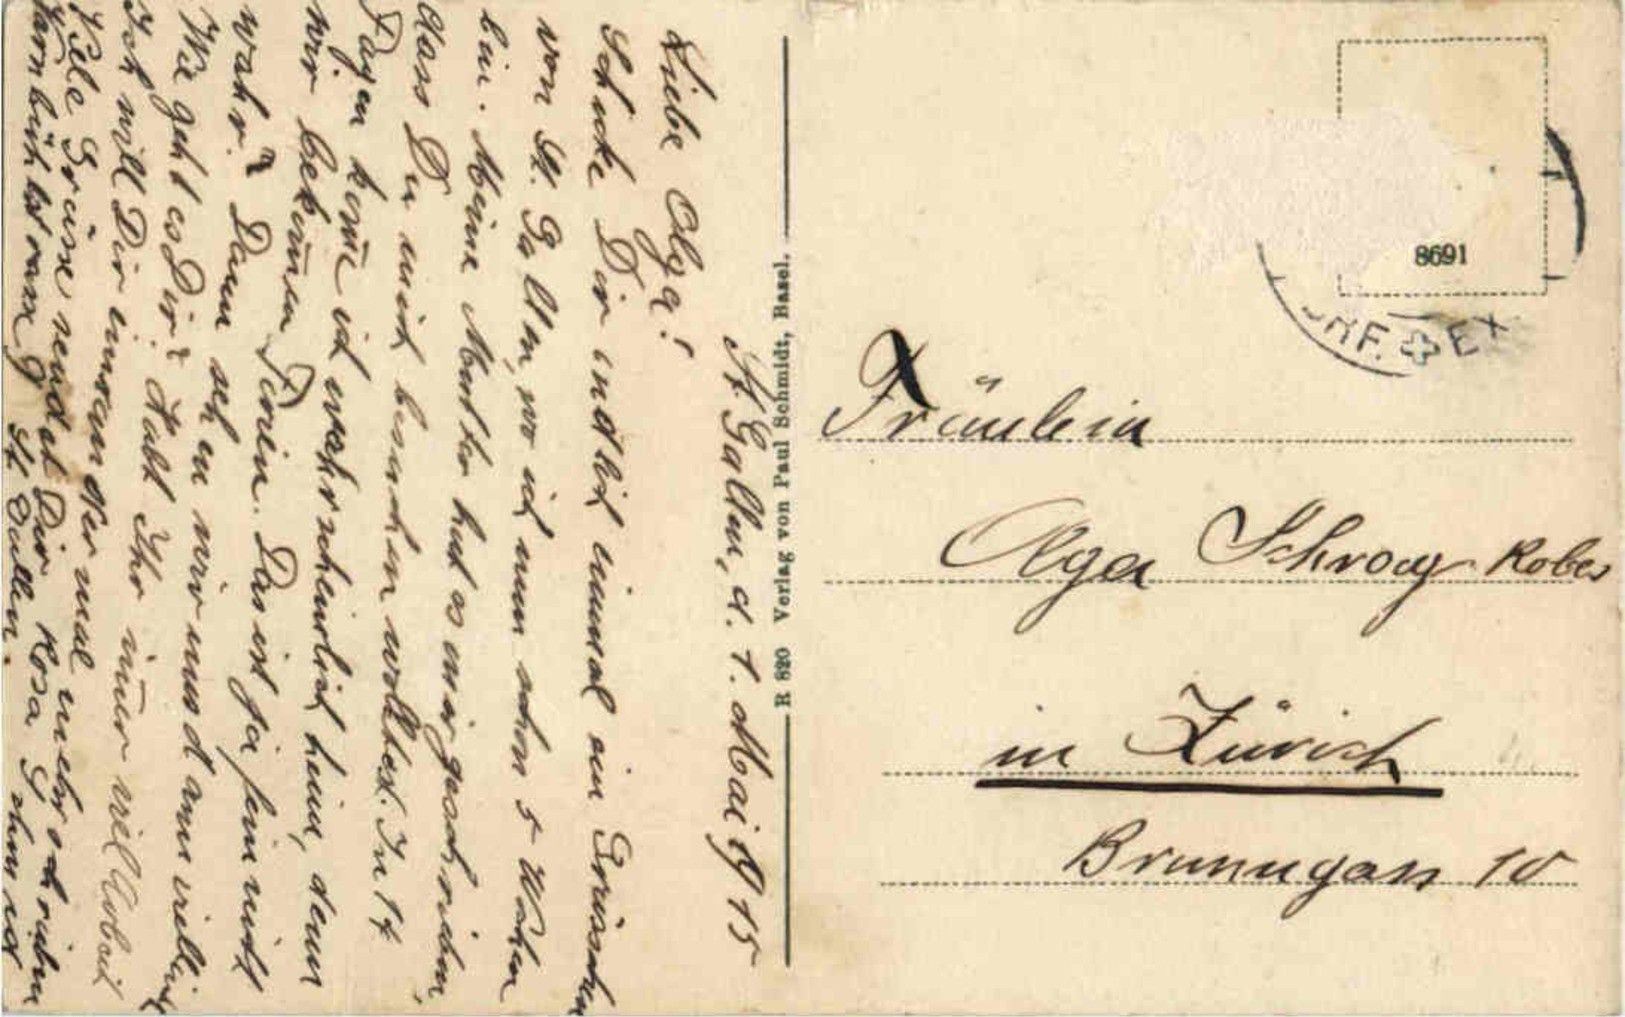 St. Gallen, d. 1. Mai 1915
Liebe Olga!
Schicke Dir endlich einmal ein Grüsschen
von St. Gallen, wo ich nun schon 5 Wochen
bin. Meine Mutter hat es mir geschrieben,
dass Du mich besuchen wolltest. In 14
Tagen kom̄e ich wahrscheinlich heim, denn
wir bekom̄en Ferien. Das ist ja fein nicht
wahr? Dann sehen wir uns dann vielleicht
Wie geht es Dir? Habt Ihr im̄er viel Arbeit
Ich will Dir ein andermal mehr schreiben
Viele Grüsse sendet Dir Rosa
St. Gallen.
R 820 Verlag von Paul Schmidt, Basel.
8691
RF. EX
Fräulein
Olga Schroag Robes
in Zürich
Brunngass 10